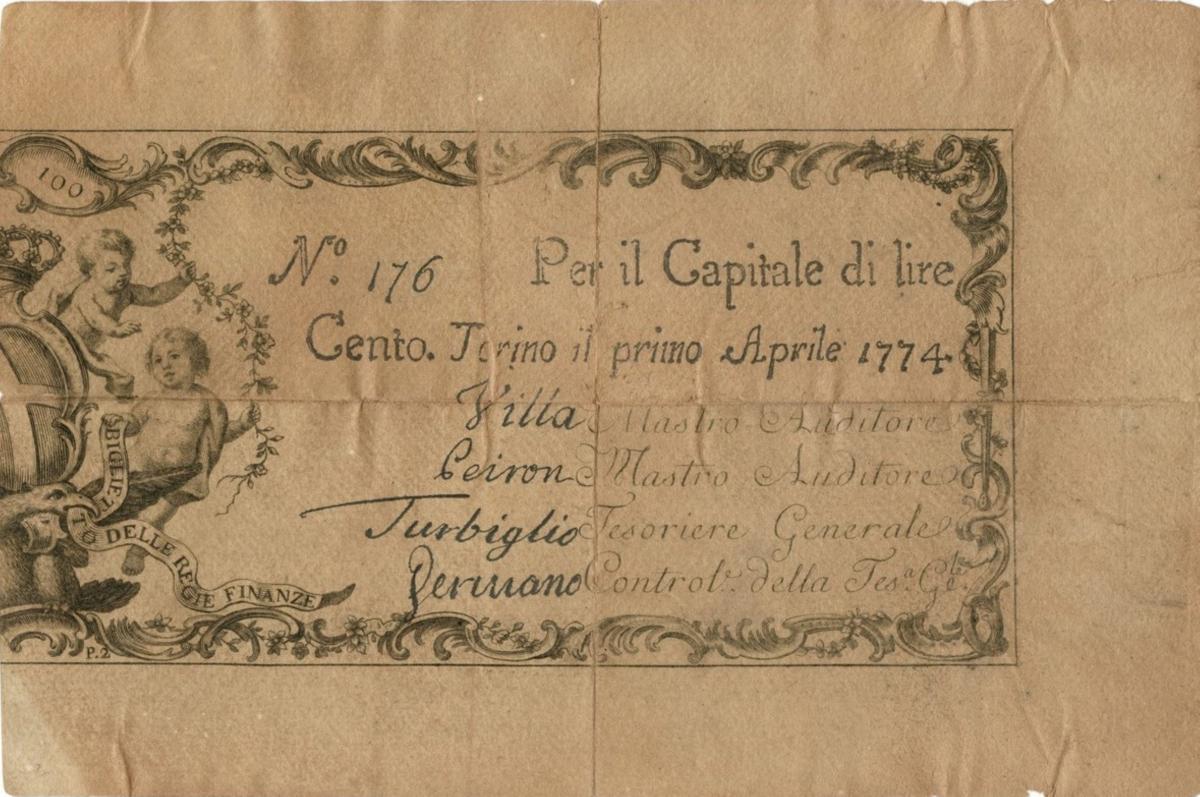 100
Nº. 176 Per il Capitale di lire
Cento. Torino il primo Aprile 1774.
Villa Mastro Auditore
Peiron Mastro Auditore
Turbiglio Tesoriere Generale
Controlʳ. della Tesª. Gˡᵉ.
BIGLIETTO DELLE REGIE FINANZE
P.2